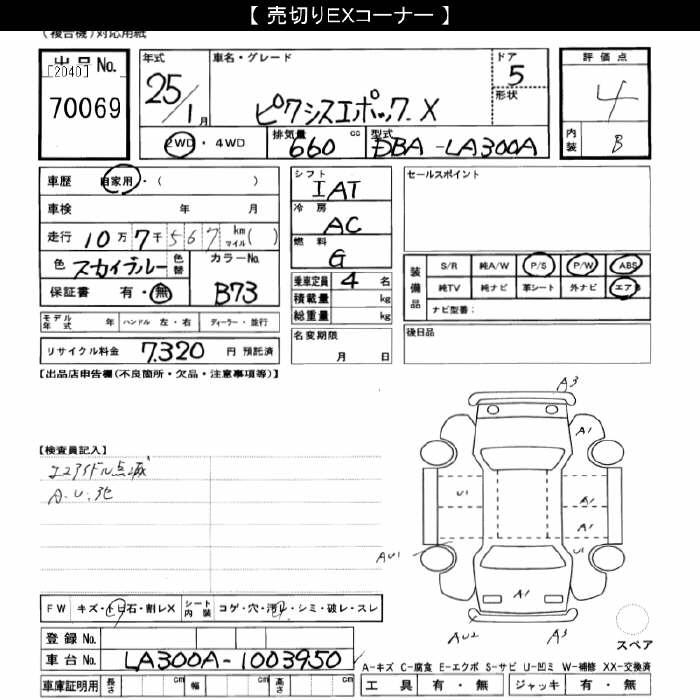 【 売切りEXコーナー 】
(複合機)対応用紙
出品 No.
[2040]
70069
年式
25/1月
車名・グレード
ピクシスエポック X
ドア
5
形状
評価点
4
内装
B
2WD・4WD
排気量
660 cc
型式
DBA-LA300A
車歴 自家用・( )
車検 年 月
走行 10万7千567 km マイル( )
色 スカイブルー 色替 カラーNo.
B73
保証書 有・無
シフト
IAT
冷房
AC
燃料
G
乗車定員 4 名
積載量 kg
総重量 kg
セールスポイント
装備品 S/R 純A/W P/S P/W ABS
純TV 純ナビ 革シート 外ナビ エアB
ナビ型番:
モデル年式 年 ハンドル 左・右 ディーラー・並行
リサイクル料金 7,320 円 預託済
名変期限
月 日
後日品
【出品店申告欄(不良箇所・欠品・注意事項等)】
【検査員記入】
エコアイドル点滅
A.U.他
A3
A1
U1
A1
A1
AU1
U1
A1
AU2
A3
スペア
FW キズ・トビ石・割レX シート内装 コゲ・穴・汚レ・シミ・破レ・スレ
登録 No.
車台 No. LA300A-1003950
A-キズ C-腐食 E-エクボ S-サビ U-凹ミ W-補修 XX-交換済
車庫証明用 長さ cm 幅 cm 高さ cm
工具 有・無 ジャッキ 有・無